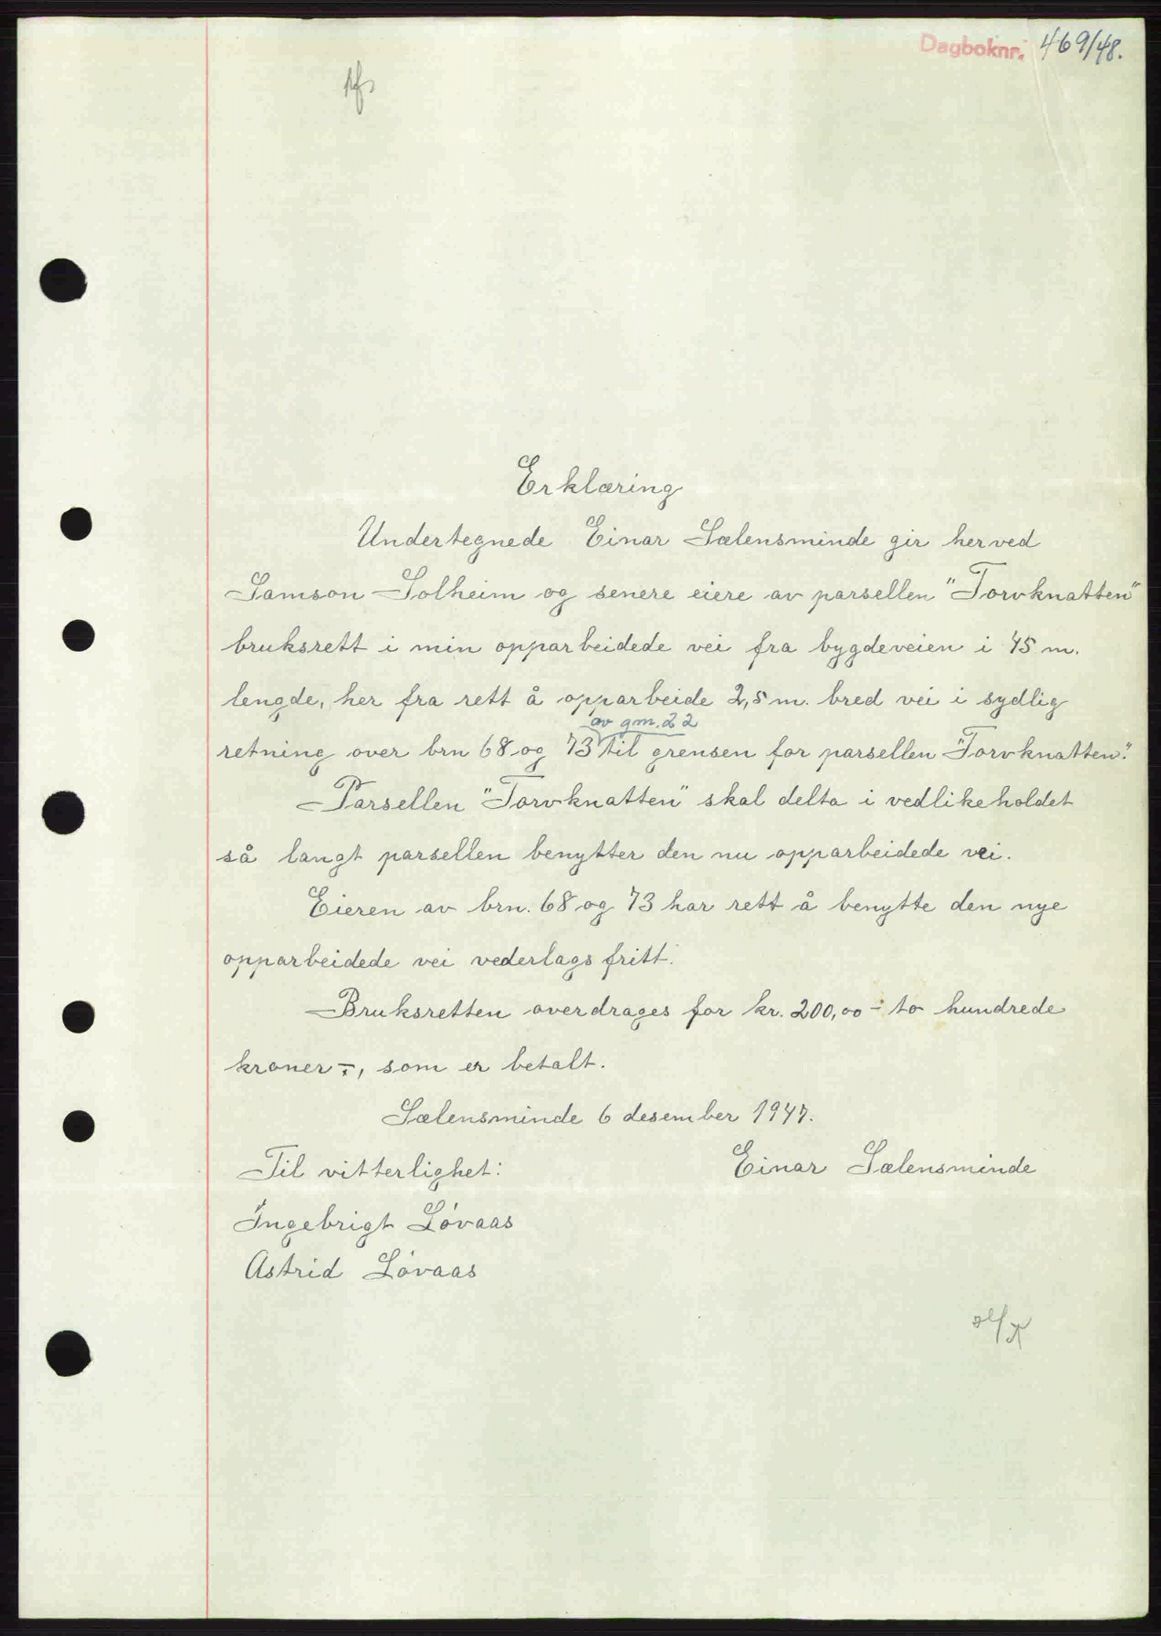 Dagboknr. 469/48.
Erklæring
Undertegnede Einar Sælensminde gir herved
Samson Solheim og senere eiere av parsellen "Torvknatten"
bruksrett i min opparbeidede vei fra bygdeveien i 45 m.
lengde, her fra rett å opparbeide 2,5 m. bred vei i sydlig
av gm. 22
retning over brn 68 og 73 til grensen for parsellen "Torvknatten".
Parsellen "Torvknatten" skal delta i vedlikeholdet
så langt parsellen benytter den nu opparbeidede vei.
Eieren av brn. 68 og 73 har rett å benytte den nye
opparbeidede vei vederlagsfritt.
Bruksretten overdrages for kr. 200,00 - to hundrede
kroner -, som er betalt.
Sælensminde 6 desember 1947.
Til vitterlighet: Einar Sælensminde
Ingebrigt Løvaas
Astrid Løvaas